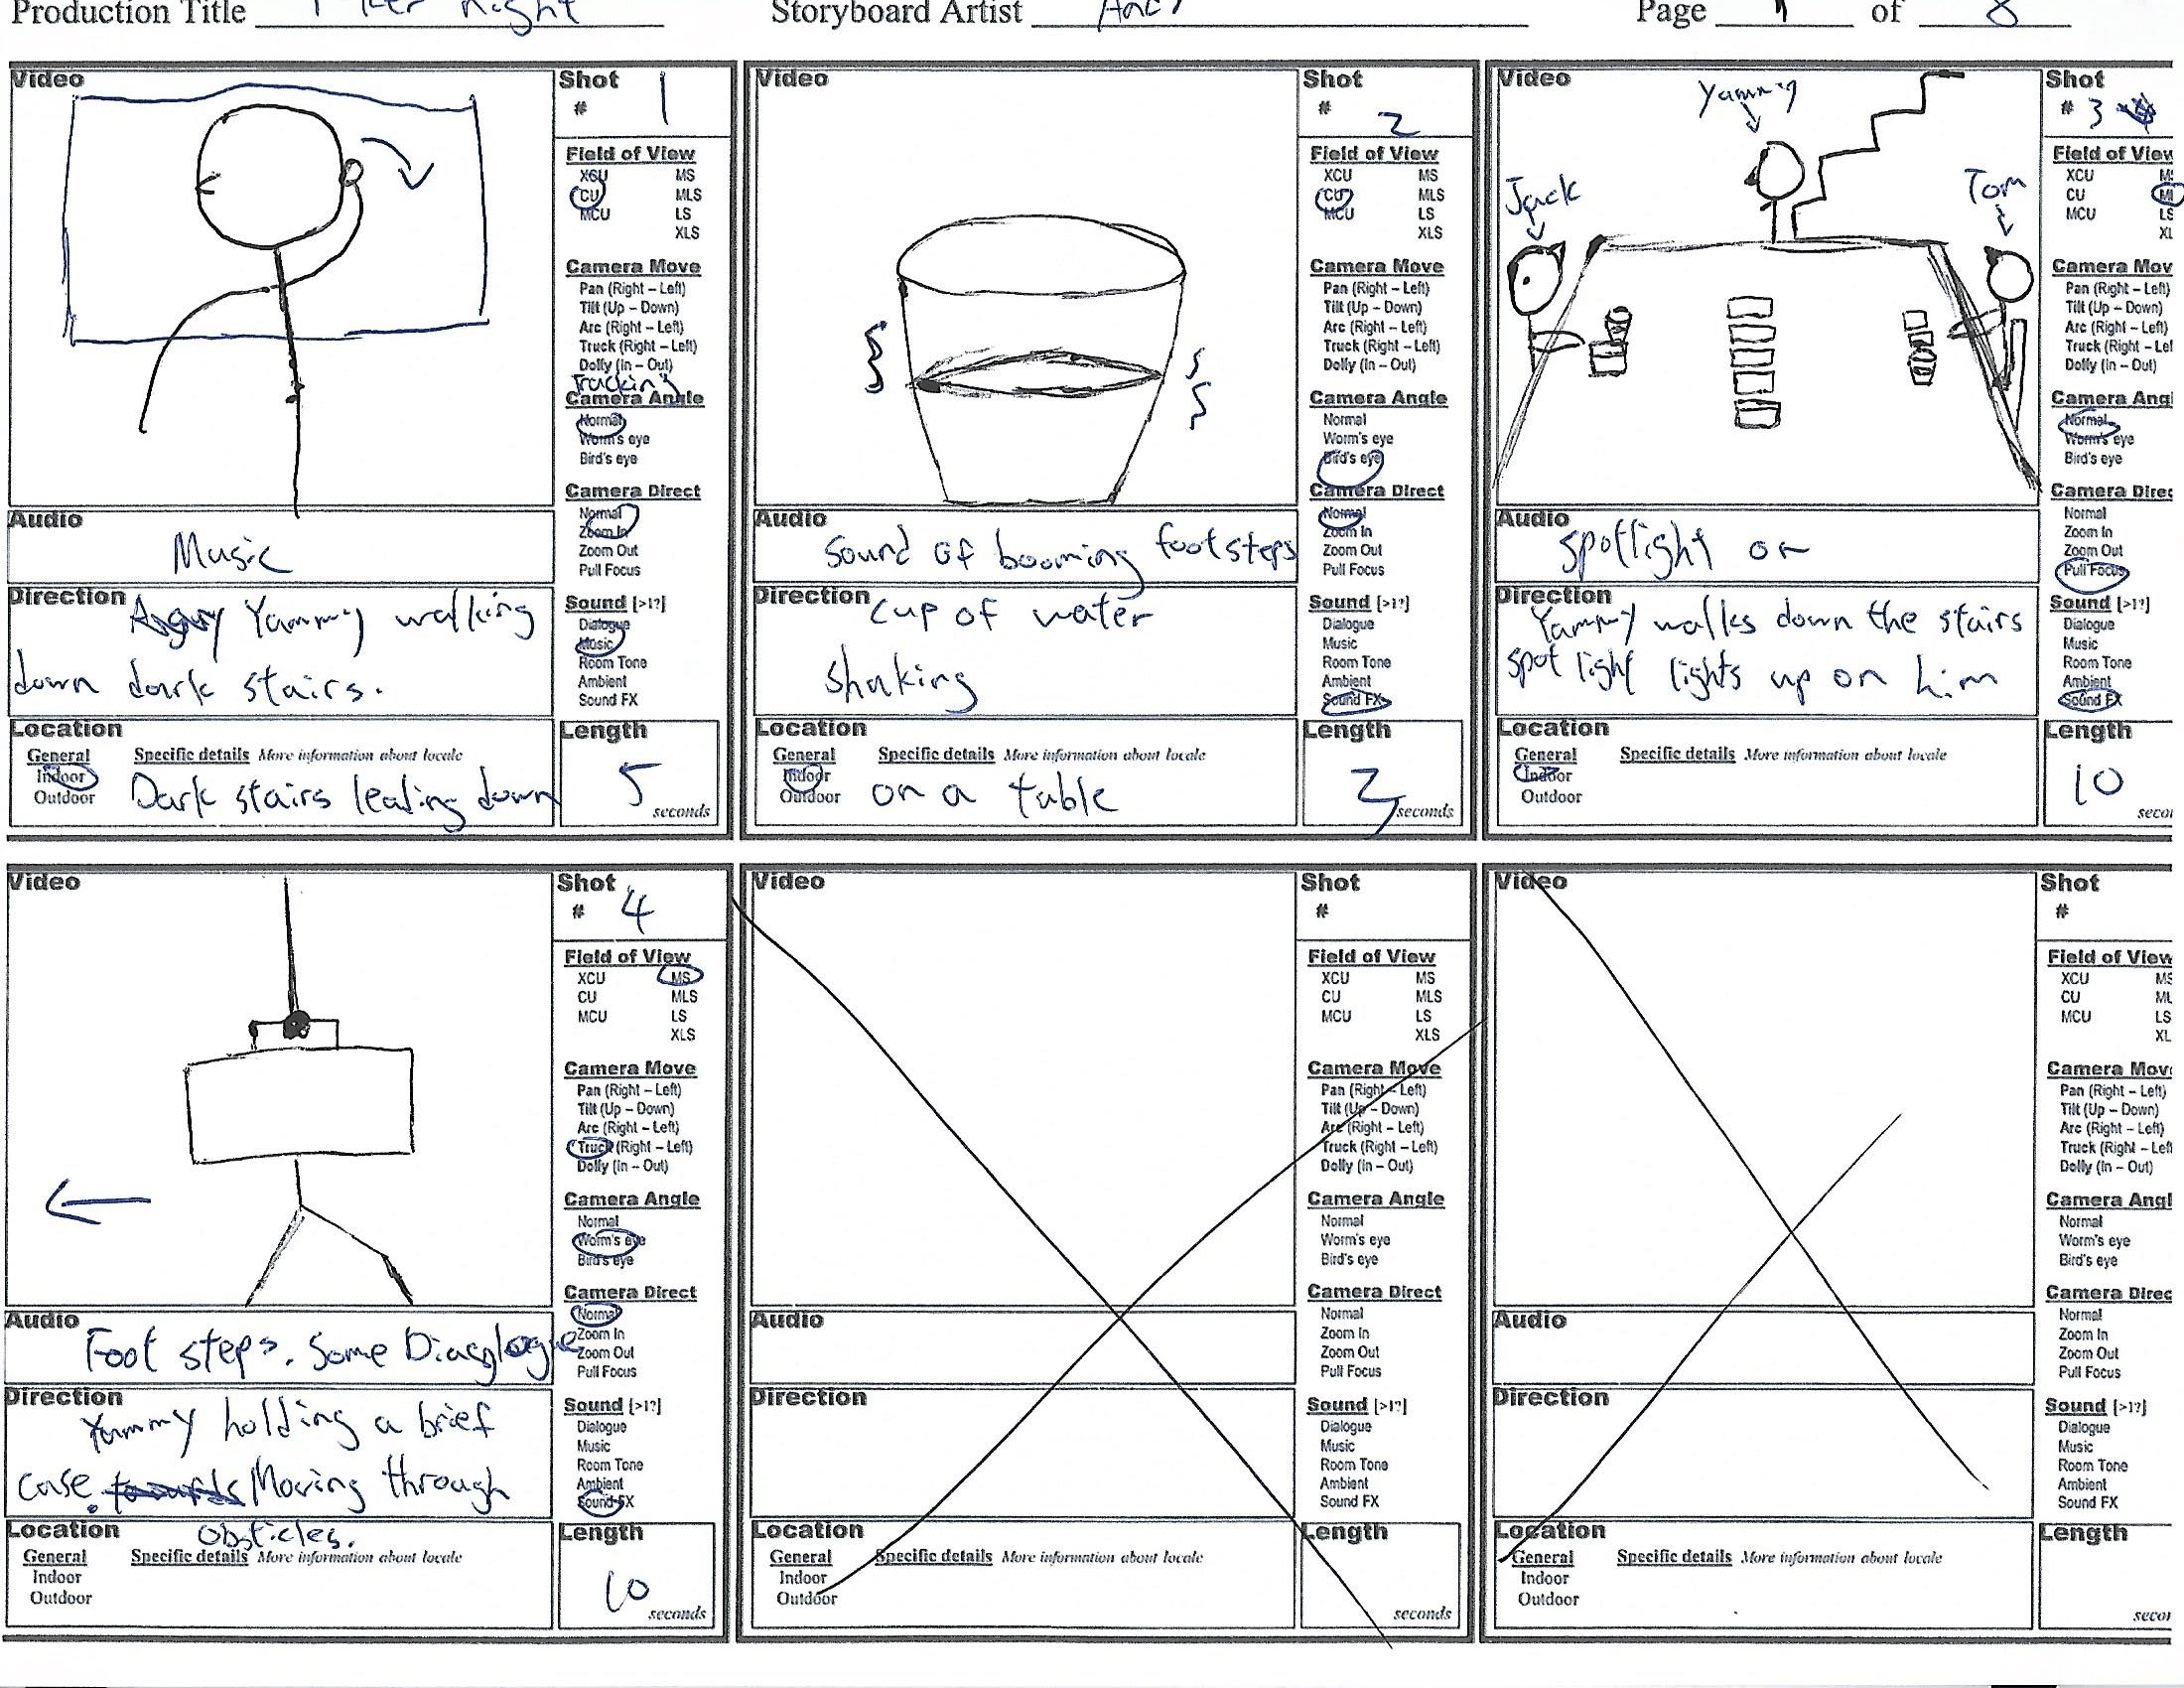 Production Title Night Storyboard Artist Page 1 of 8
Video
Shot
# 1
Field of View
XCU MS
CU MLS
MCU LS
XLS
Camera Move
Pan (Right – Left)
Tilt (Up – Down)
Arc (Right – Left)
Truck (Right – Left)
Dolly (In – Out)
Tracking
Camera Angle
Normal
Worm's eye
Bird's eye
Camera Direct
Normal
Zoom In
Zoom Out
Pull Focus
Sound [>1?]
Dialogue
Music
Room Tone
Ambient
Sound FX
Audio
Music
Direction Angry Yammy walking
down dark stairs.
Location
General Specific details More information about locale
Indoor
Outdoor
Dark stairs leading down
Length
5
seconds
Video
Shot
# 2
Field of View
XCU MS
CU MLS
MCU LS
XLS
Camera Move
Pan (Right – Left)
Tilt (Up – Down)
Arc (Right – Left)
Truck (Right – Left)
Dolly (In – Out)
Camera Angle
Normal
Worm's eye
Bird's eye
Camera Direct
Normal
Zoom In
Zoom Out
Pull Focus
Sound [>1?]
Dialogue
Music
Room Tone
Ambient
Sound FX
Audio
Sound of booming footsteps
Direction Cup of water
shaking
Location
General Specific details More information about locale
Indoor
Outdoor
on a table
Length
seconds
Video
Yammy
Jack
Tom
Shot
# 3
Field of View
XCU
CU
MCU LS
XL
Camera Mov
Pan (Right – Left)
Tilt (Up – Down)
Arc (Right – Left)
Truck (Right – Lef
Dolly (In – Out)
Camera Angl
Normal
Worm's eye
Bird's eye
Camera Direc
Normal
Zoom In
Zoom Out
Pull Focus
Sound [>1?]
Dialogue
Music
Room Tone
Ambient
Sound FX
Audio
spotlight on
Direction
Yammy walks down the stairs
spot light lights up on him
Location
General Specific details More information about locale
Indoor
Outdoor
Length
10
secon
Video
Shot
# 4
Field of View
XCU MS
CU MLS
MCU LS
XLS
Camera Move
Pan (Right – Left)
Tilt (Up – Down)
Arc (Right – Left)
Truck (Right – Left)
Dolly (In – Out)
Camera Angle
Normal
Worm's eye
Bird's eye
Camera Direct
Normal
Zoom In
Zoom Out
Pull Focus
Sound [>1?]
Dialogue
Music
Room Tone
Ambient
Sound FX
Audio
Foot steps. Some Diacglogue
Direction
Yammy holding a brief
case. towards Moving through
obsticles.
Location
General Specific details More information about locale
Indoor
Outdoor
Length
10
seconds
Video
Shot
#
Field of View
XCU MS
CU MLS
MCU LS
XLS
Camera Move
Pan (Right – Left)
Tilt (Up – Down)
Arc (Right – Left)
Truck (Right – Left)
Dolly (In – Out)
Camera Angle
Normal
Worm's eye
Bird's eye
Camera Direct
Normal
Zoom In
Zoom Out
Pull Focus
Sound [>1?]
Dialogue
Music
Room Tone
Ambient
Sound FX
Audio
Direction
Location
General Specific details More information about locale
Indoor
Outdoor
Length
seconds
Video
Shot
#
Field of View
XCU MS
CU ML
MCU LS
XL
Camera Mov
Pan (Right – Left)
Tilt (Up – Down)
Arc (Right – Left)
Truck (Right – Left
Dolly (In – Out)
Camera Angl
Normal
Worm's eye
Bird's eye
Camera Direc
Normal
Zoom In
Zoom Out
Pull Focus
Sound [>1?]
Dialogue
Music
Room Tone
Ambient
Sound FX
Audio
Direction
Location
General Specific details More information about locale
Indoor
Outdoor
Length
secon